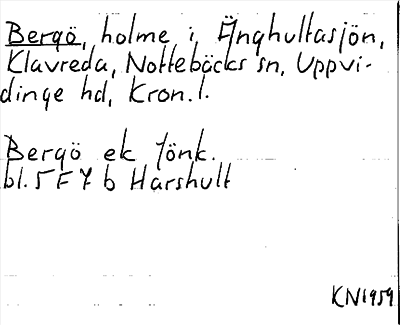 Bergö, holme i Änghultasjön,
Klavreda, Nottebäcks sn, Uppvi-
dinge hd, Kron. l.
Bergö ek fönk.
bl. 5 F 7 b Harshult
KN1959